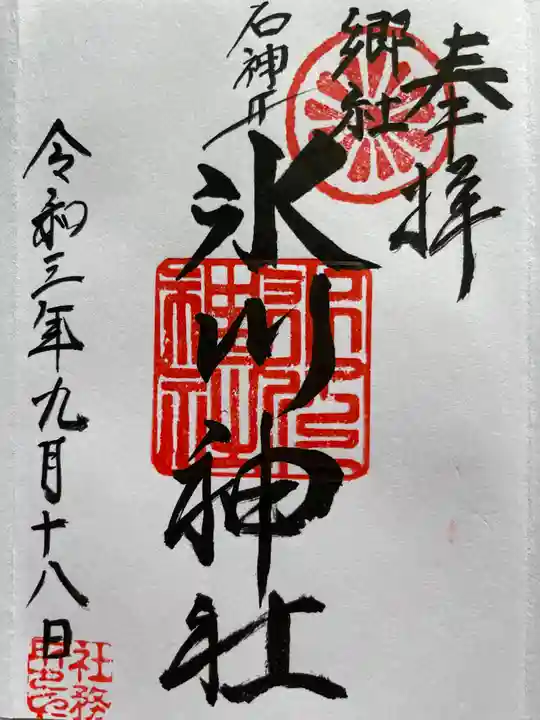 奉拝
郷社
石神井
氷川神社
令和三年九月十八日
氷川神社
社務